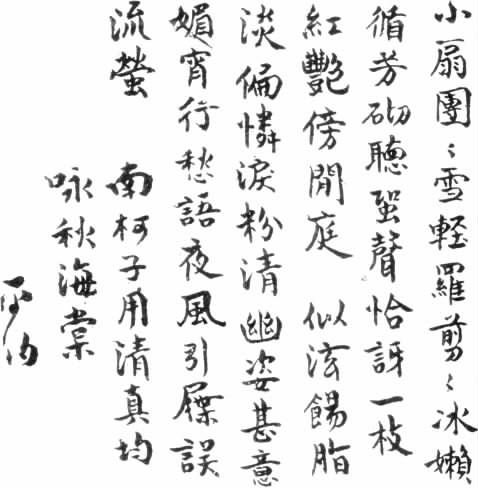 小扇團〻雪軽羅剪〻冰嬾
循芳砌聽蛩聲恰訝一枝
紅艷傍閒庭 似泫餳脂
淡偏憐淚粉清幽姿甚意
媚宵行愁語夜風引屧誤
流螢 南柯子用清真均
咏秋海棠